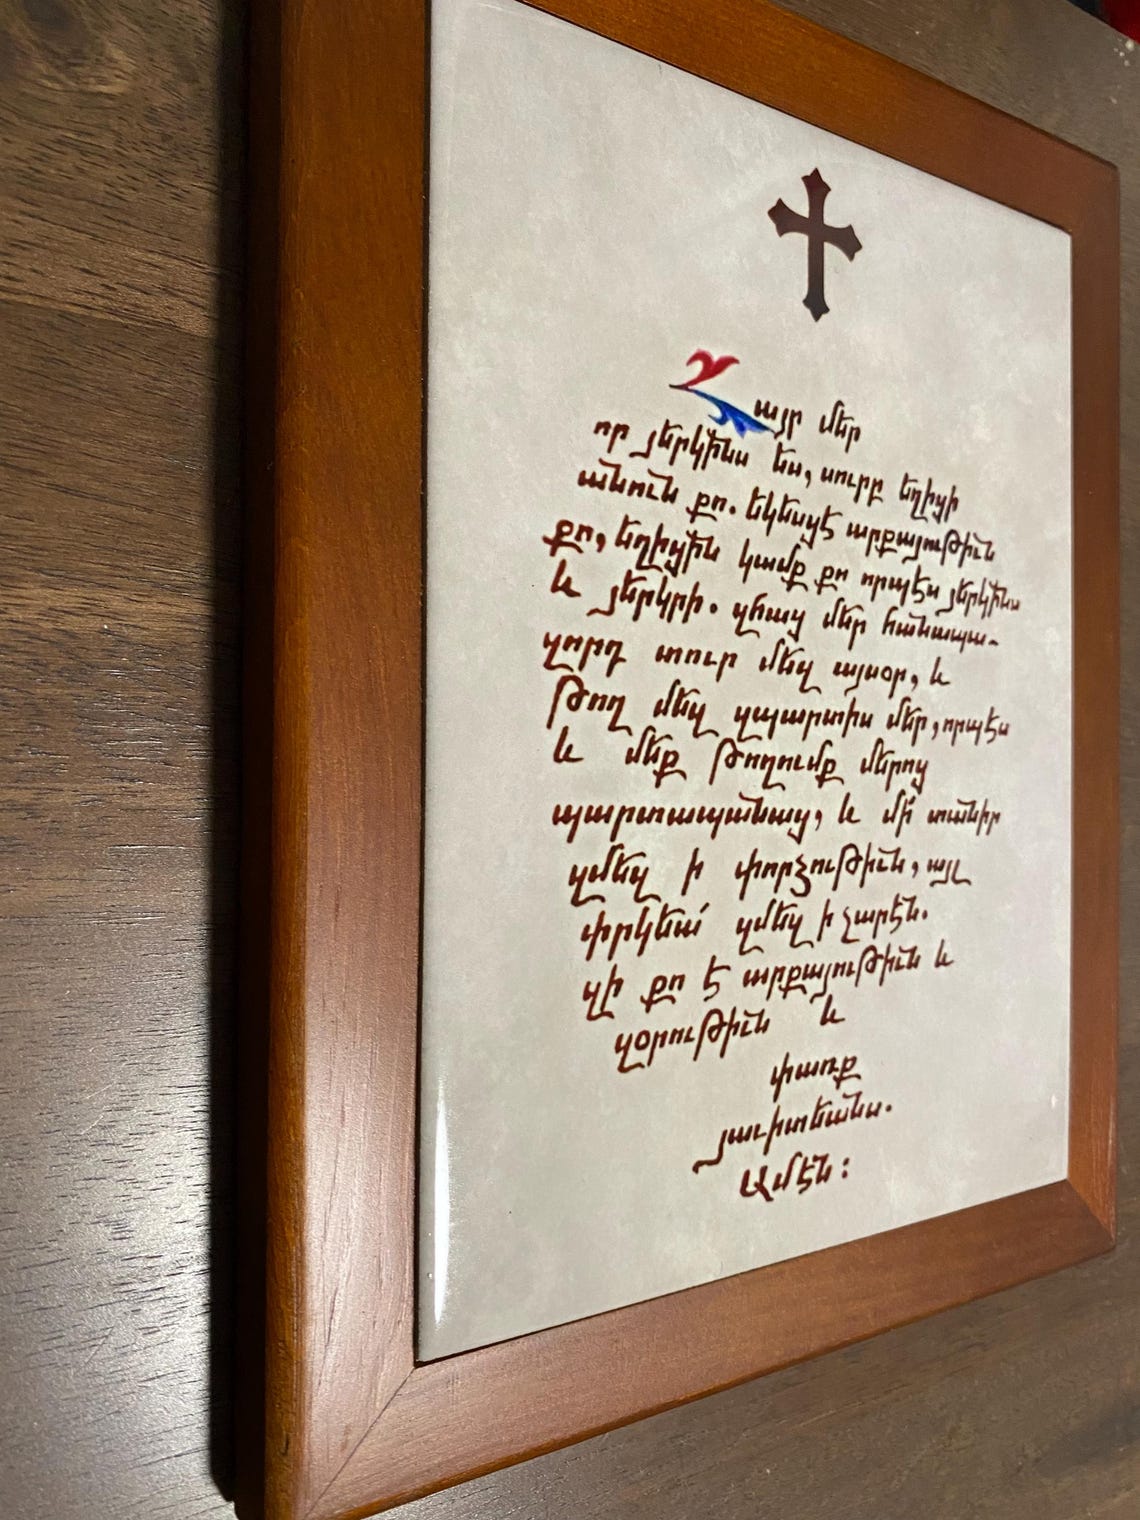 Հայր մեր
որ յերկինս ես, սուրբ եղիցի
անուն քո. եկեսցէ արքայութիւն
քո, եղիցին կամք քո որպէս յերկինս
և յերկրի. զհաց մեր հանապա-
զորդ տուր մեզ այսօր, և
թող մեզ զպարտիս մեր, որպէս
և մեք թողումք մերոց
պարտապանաց, և մի՛ տանիր
զմեզ ի փորձութիւն, այլ
փրկեա՛ զմեզ ի չարէն.
զի քո է արքայութիւն և
զօրութիւն և
փառք
յաւիտեանս.
Ամէն: